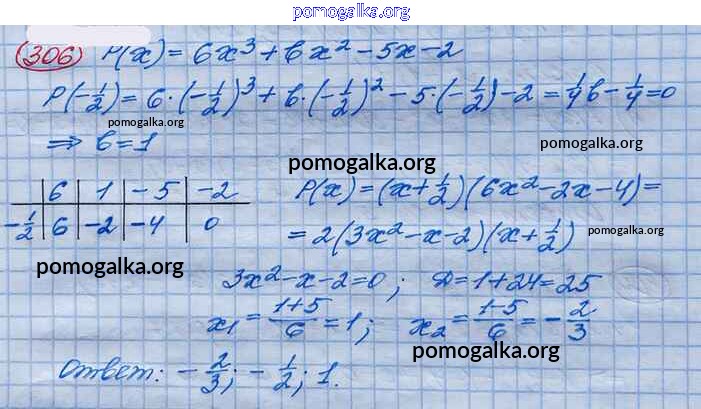 pomogalka.org
(306) P(x) = 6x³ + bx² - 5x - 2
P(-1/2) = 6·(-1/2)³ + b·(-1/2)² - 5·(-1/2) - 2 = 1/4b - 1/4 = 0
pomogalka.org
⇒ b = 1
pomogalka.org
pomogalka.org
6 | 1 | -5 | -2
-1/2 | 6 | -2 | -4 | 0
P(x) = (x + 1/2)(6x² - 2x - 4) =
= 2(3x² - x - 2)(x + 1/2)
pomogalka.org
pomogalka.org
3x² - x - 2 = 0; D = 1 + 24 = 25
x₁ = (1+5)/6 = 1; x₂ = (1-5)/6 = -2/3
pomogalka.org
Ответ: -2/3; -1/2; 1.